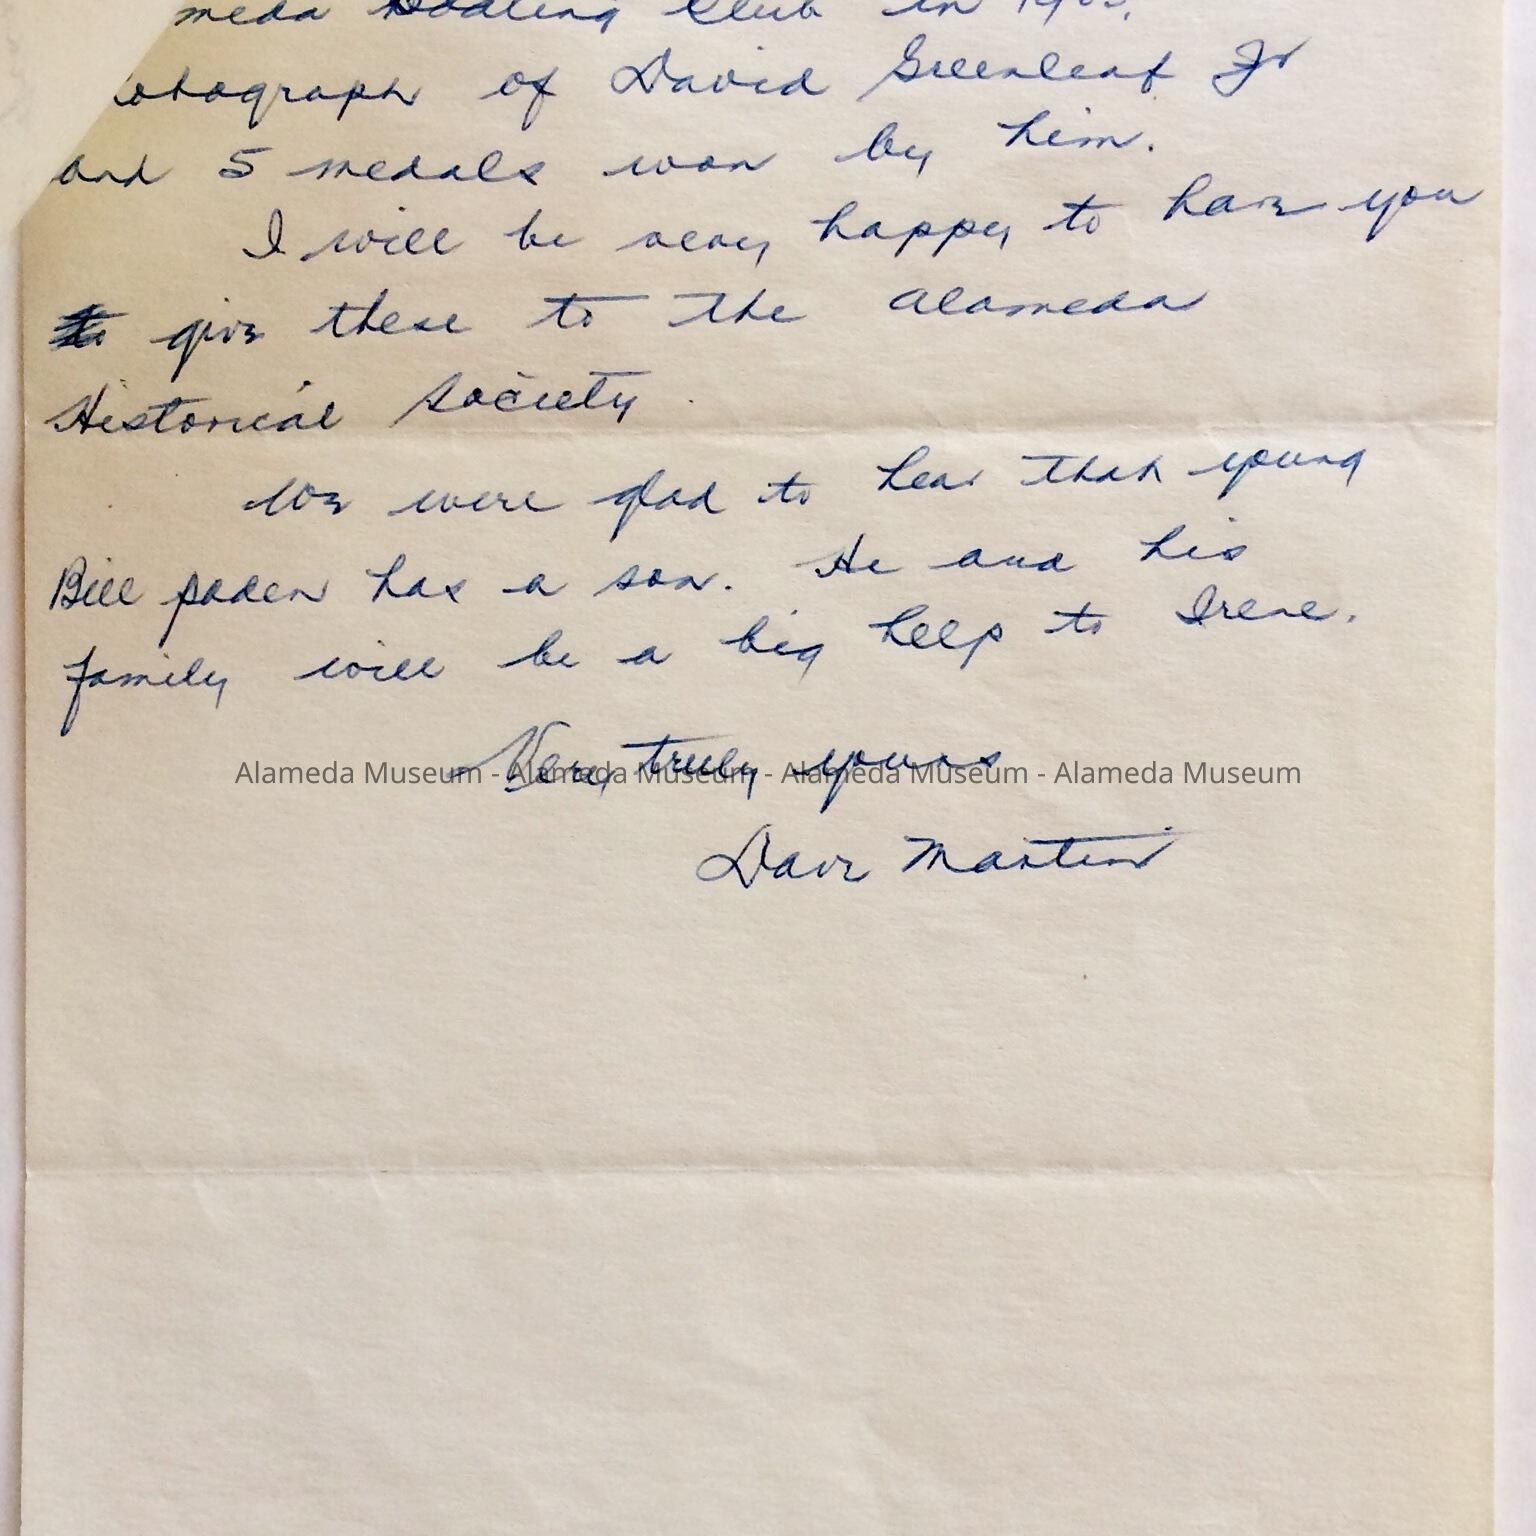 meda Boating Club in
tograph of David Greenleaf Jr
and 5 medals won by him.
I will be very happy to have you
to give these to the Alameda
Historical Society.
We were glad to hear that young
Bill Paden has a son. He and his
family will be a big help to Irene.
Very truly yours
Alameda Museum - Alameda Museum - Alameda Museum - Alameda Museum
Dave Martin